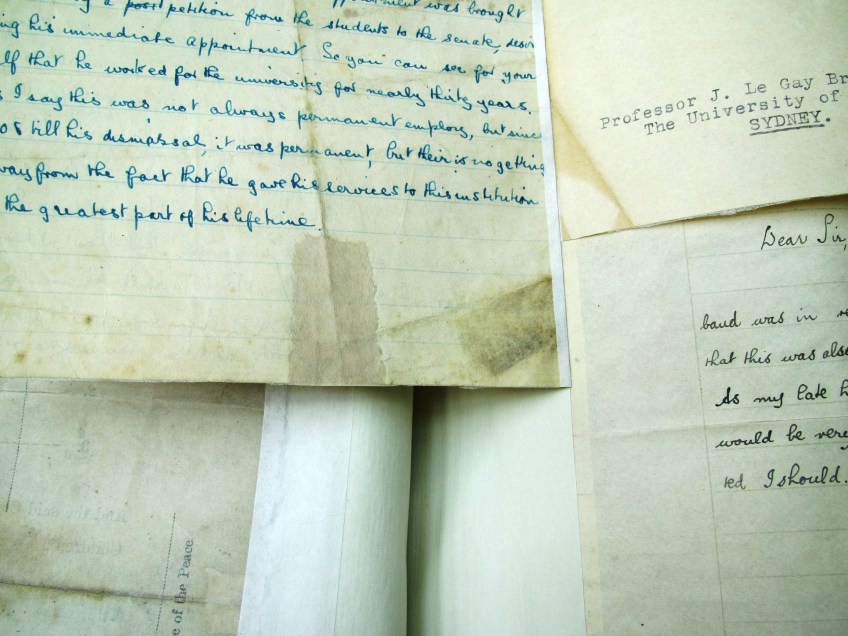 a post petition from the students to the senate, desir
ing his immediate appointment. So you can see for your
lf that he worked for the university for nearly thirty years.
s I say this was not always permanent employ, but since
08 till his dismissal, it was permanent, but their is no getting
way from the fact that he gave his services to this institution
the greatest part of his lifetime.
Professor J. Le Gay Br
The University of
SYDNEY.
Dear Sir,
baud was in
that this was also
As my late h
would be very
ted I should.
e of the Peace